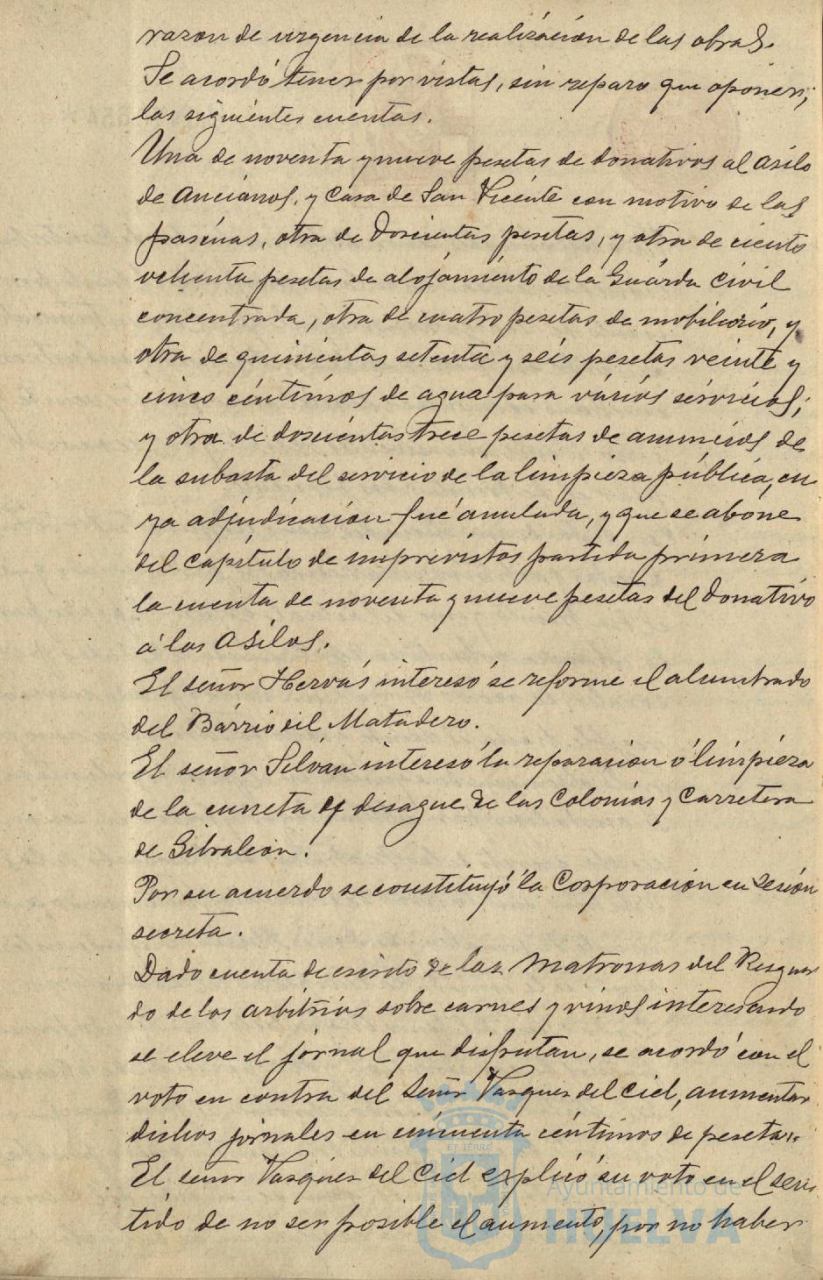 razon de urgencia de la realización de las obras.
Se acordó tener por vistas, sin reparo que oponer,
las siguientes cuentas.
Una de noventa y nueve pesetas de donativos al asilo
de Ancianos, y Casa de San Vicente con motivo de las
pascuas, otra de Doscientas pesetas, y otra de ciento
ochenta pesetas de alojamiento de la Guardia Civil
concentrada, otra de cuatro pesetas de mobiliario, y
otra de quinientas setenta y seis pesetas veinte y
cinco céntimos de agua para varios servicios;
y otra de doscientas trece pesetas de anuncios de
la subasta del servicio de la limpieza pública, cu
ya adjudicación fué anulada, y que se abone
del capítulo de imprevistos partida primera
la cuenta de noventa y nueve pesetas del Donativo
á los Asilos.
El señor Hervás interesó se reforme el alumbrado
del Bárrio del Matadero.
El señor Silván interesó la reparacion ó limpieza
de la cuneta de desague de las Colonias y Carretera
de Gibraleon.
Por su acuerdo se constituyó la Corporación en sesión
secreta.
Dado cuenta de escrito de las Matronas del Resguar
do de los arbitrios sobre carnes y vinos interesando
se eleve el jornal que disfrutan, se acordó con el
voto en contra del Señor Vasquez del Cid, aumentar
dichos jornales en cincuenta céntimos de peseta.
El señor Vasquez del Cid explicó su voto en el sen
tido de no ser posible el aumento, por no haber
Ayuntamiento de
HUELVA